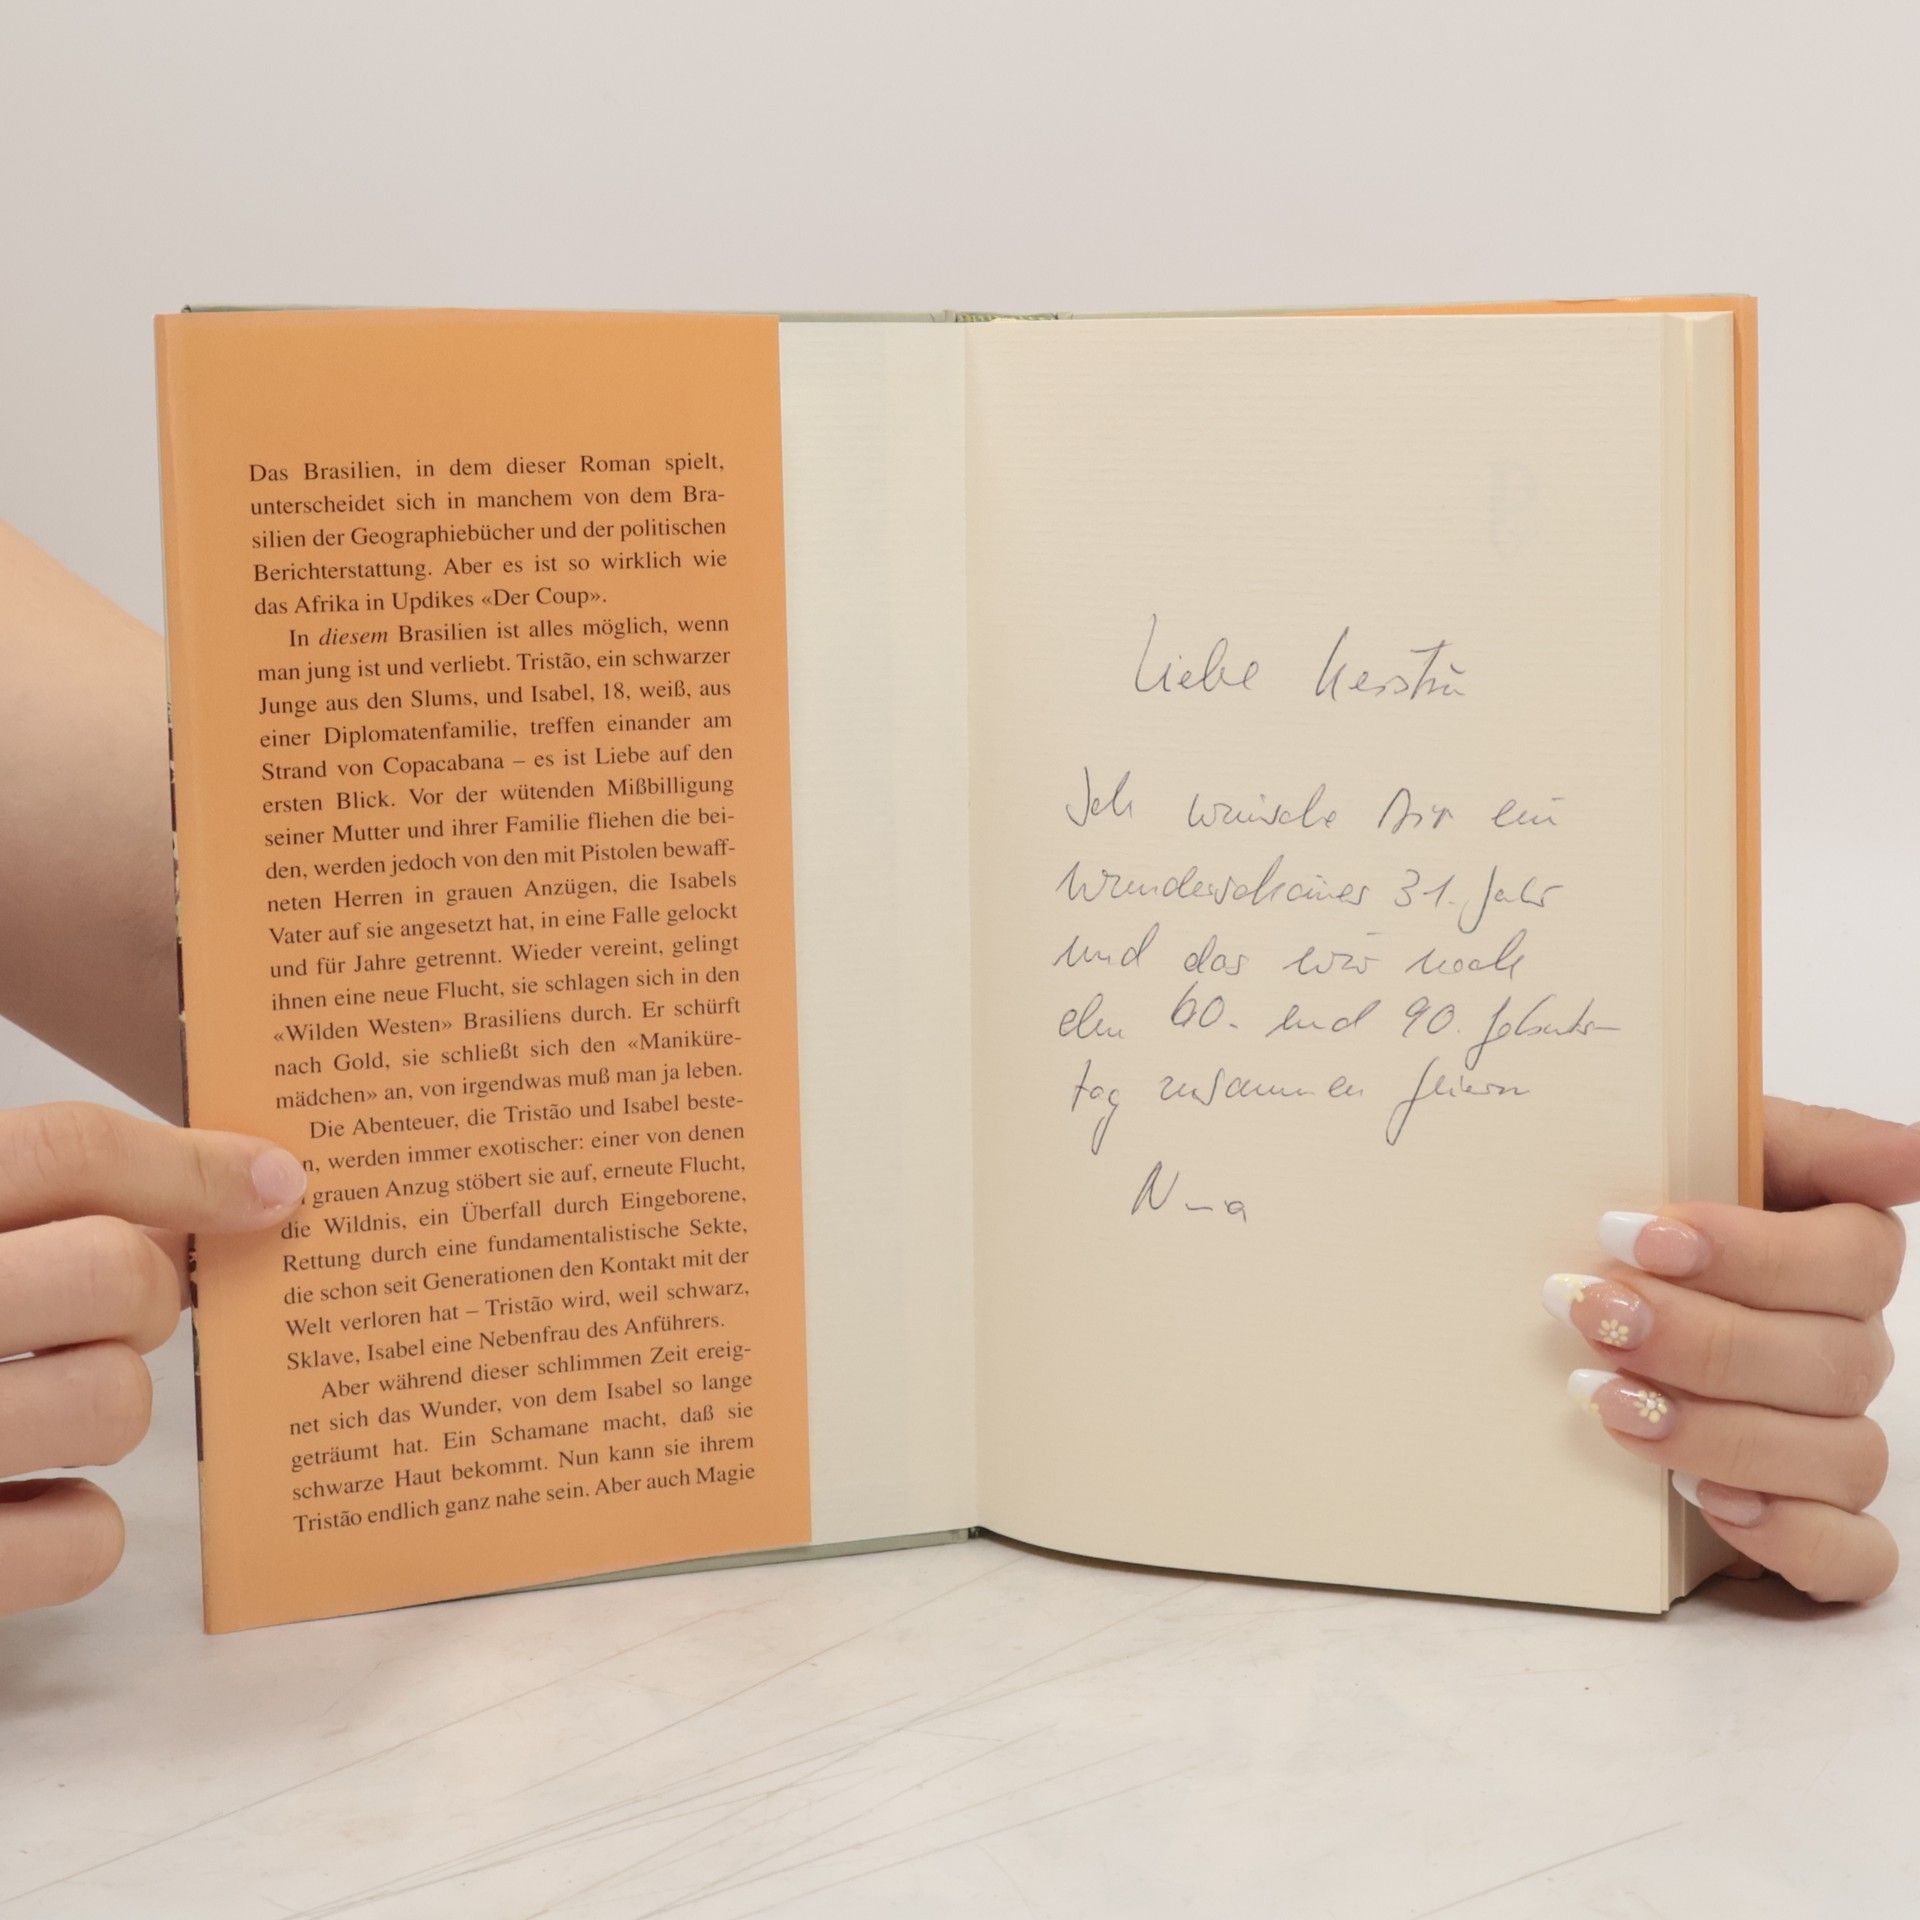 Das Brasilien, in dem dieser Roman spielt,
unterscheidet sich in manchem von dem Bra-
silien der Geographiebücher und der politischen
Berichterstattung. Aber es ist so wirklich wie
das Afrika in Updikes «Der Coup».
In diesem Brasilien ist alles möglich, wenn
man jung ist und verliebt. Tristão, ein schwarzer
Junge aus den Slums, und Isabel, 18, weiß, aus
einer Diplomatenfamilie, treffen einander am
Strand von Copacabana – es ist Liebe auf den
ersten Blick. Vor der wütenden Mißbilligung
seiner Mutter und ihrer Familie fliehen die bei-
den, werden jedoch von den mit Pistolen bewaff-
neten Herren in grauen Anzügen, die Isabels
Vater auf sie angesetzt hat, in eine Falle gelockt
und für Jahre getrennt. Wieder vereint, gelingt
ihnen eine neue Flucht, sie schlagen sich in den
«Wilden Westen» Brasiliens durch. Er schürft
nach Gold, sie schließt sich den «Maniküre-
mädchen» an, von irgendwas muß man ja leben.
Die Abenteuer, die Tristão und Isabel beste-
n, werden immer exotischer: einer von denen
grauen Anzug stöbert sie auf, erneute Flucht,
die Wildnis, ein Überfall durch Eingeborene,
Rettung durch eine fundamentalistische Sekte,
die schon seit Generationen den Kontakt mit der
Welt verloren hat – Tristão wird, weil schwarz,
Sklave, Isabel eine Nebenfrau des Anführers.
Aber während dieser schlimmen Zeit ereig-
net sich das Wunder, von dem Isabel so lange
geträumt hat. Ein Schamane macht, daß sie
schwarze Haut bekommt. Nun kann sie ihrem
Tristão endlich ganz nahe sein. Aber auch Magie
Liebe Kerstin
Ich wünsche Dir ein
wunderschönes 31. Jahr
und das wir noch
den 60. und 90. Geburts-
tag zusammen feiern